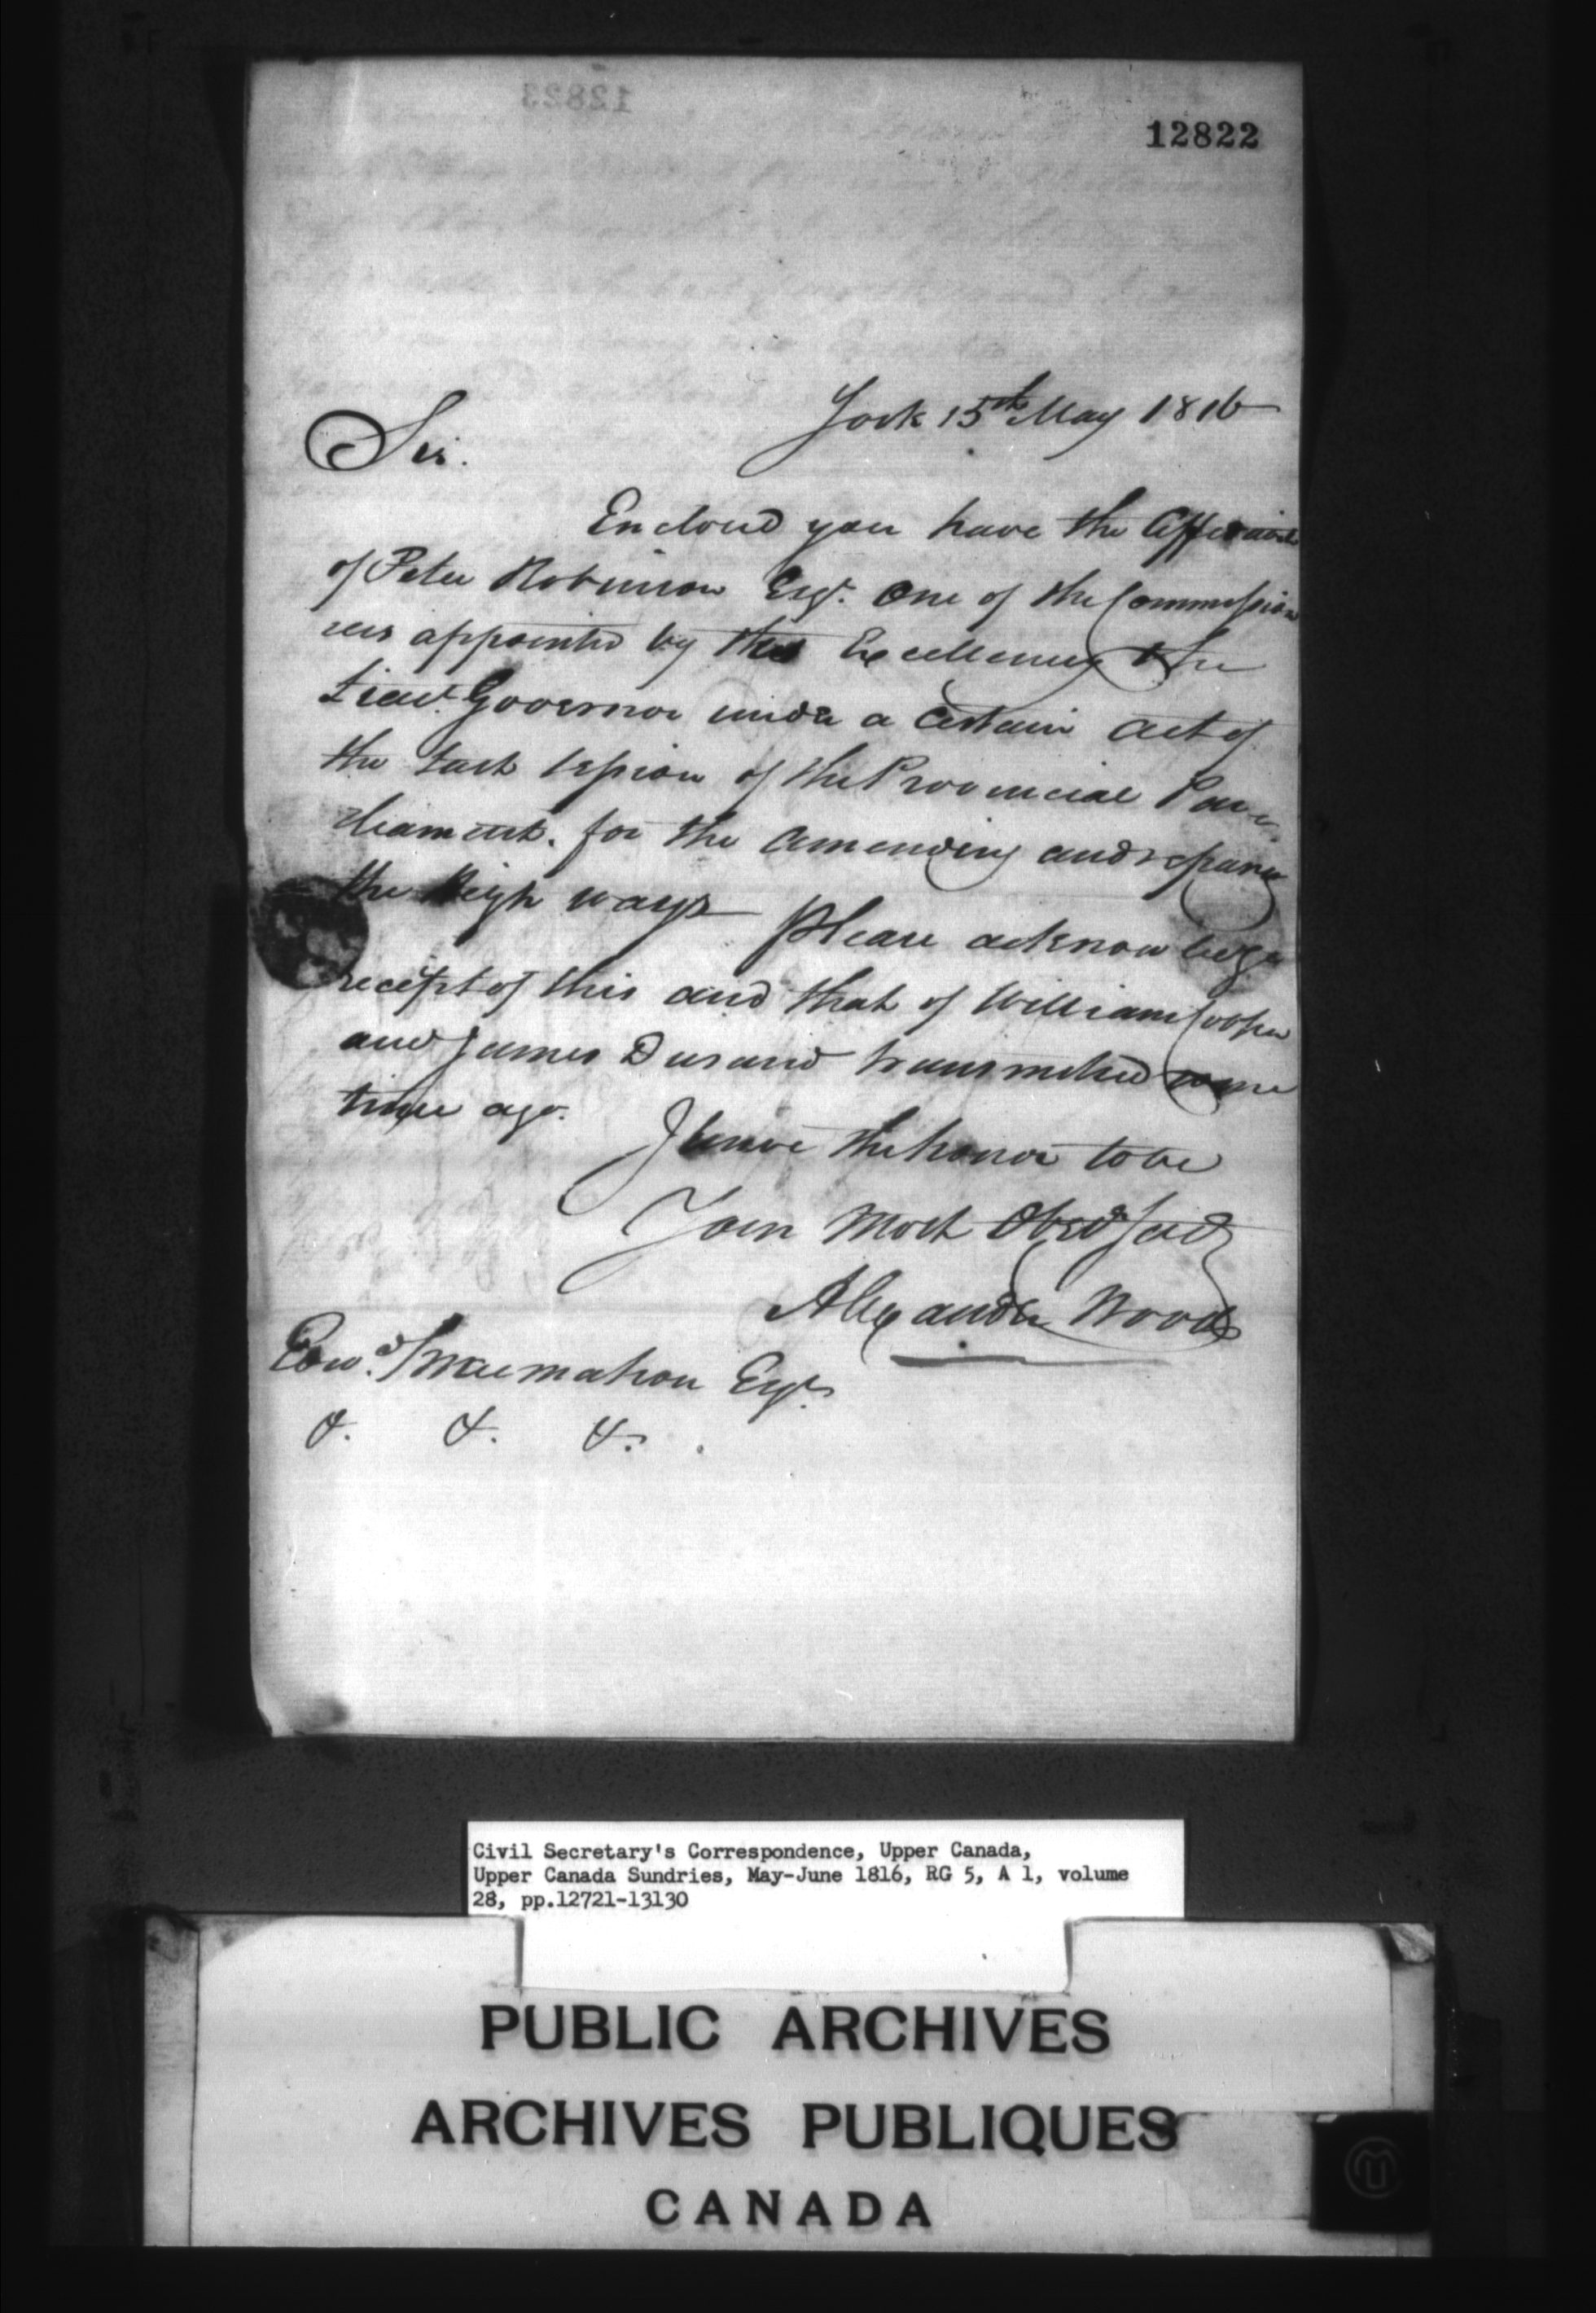 12823
12822
York 15th May 1816
Sir.
Enclosed you have the Affidavit
of Peter Robinson Esqr. One of the Commission
ers appointed by His Excellency the
Lieut. Governor under a Certain Act of
the last Session of the Provincial Par
liament. for the Amending and repairing
the High ways Please acknowledge
receipt of this and that of William Cooper
and James Durand transmitted some
time ago.
I have the honor to be
Your Most Obedt Servt
Alexander Wood
Edwd. Macmahon Esqr.
&. &. &.
Civil Secretary's Correspondence, Upper Canada,
Upper Canada Sundries, May-June 1816, RG 5, A 1, volume
28, pp.12721-13130
PUBLIC ARCHIVES
ARCHIVES PUBLIQUES
CANADA